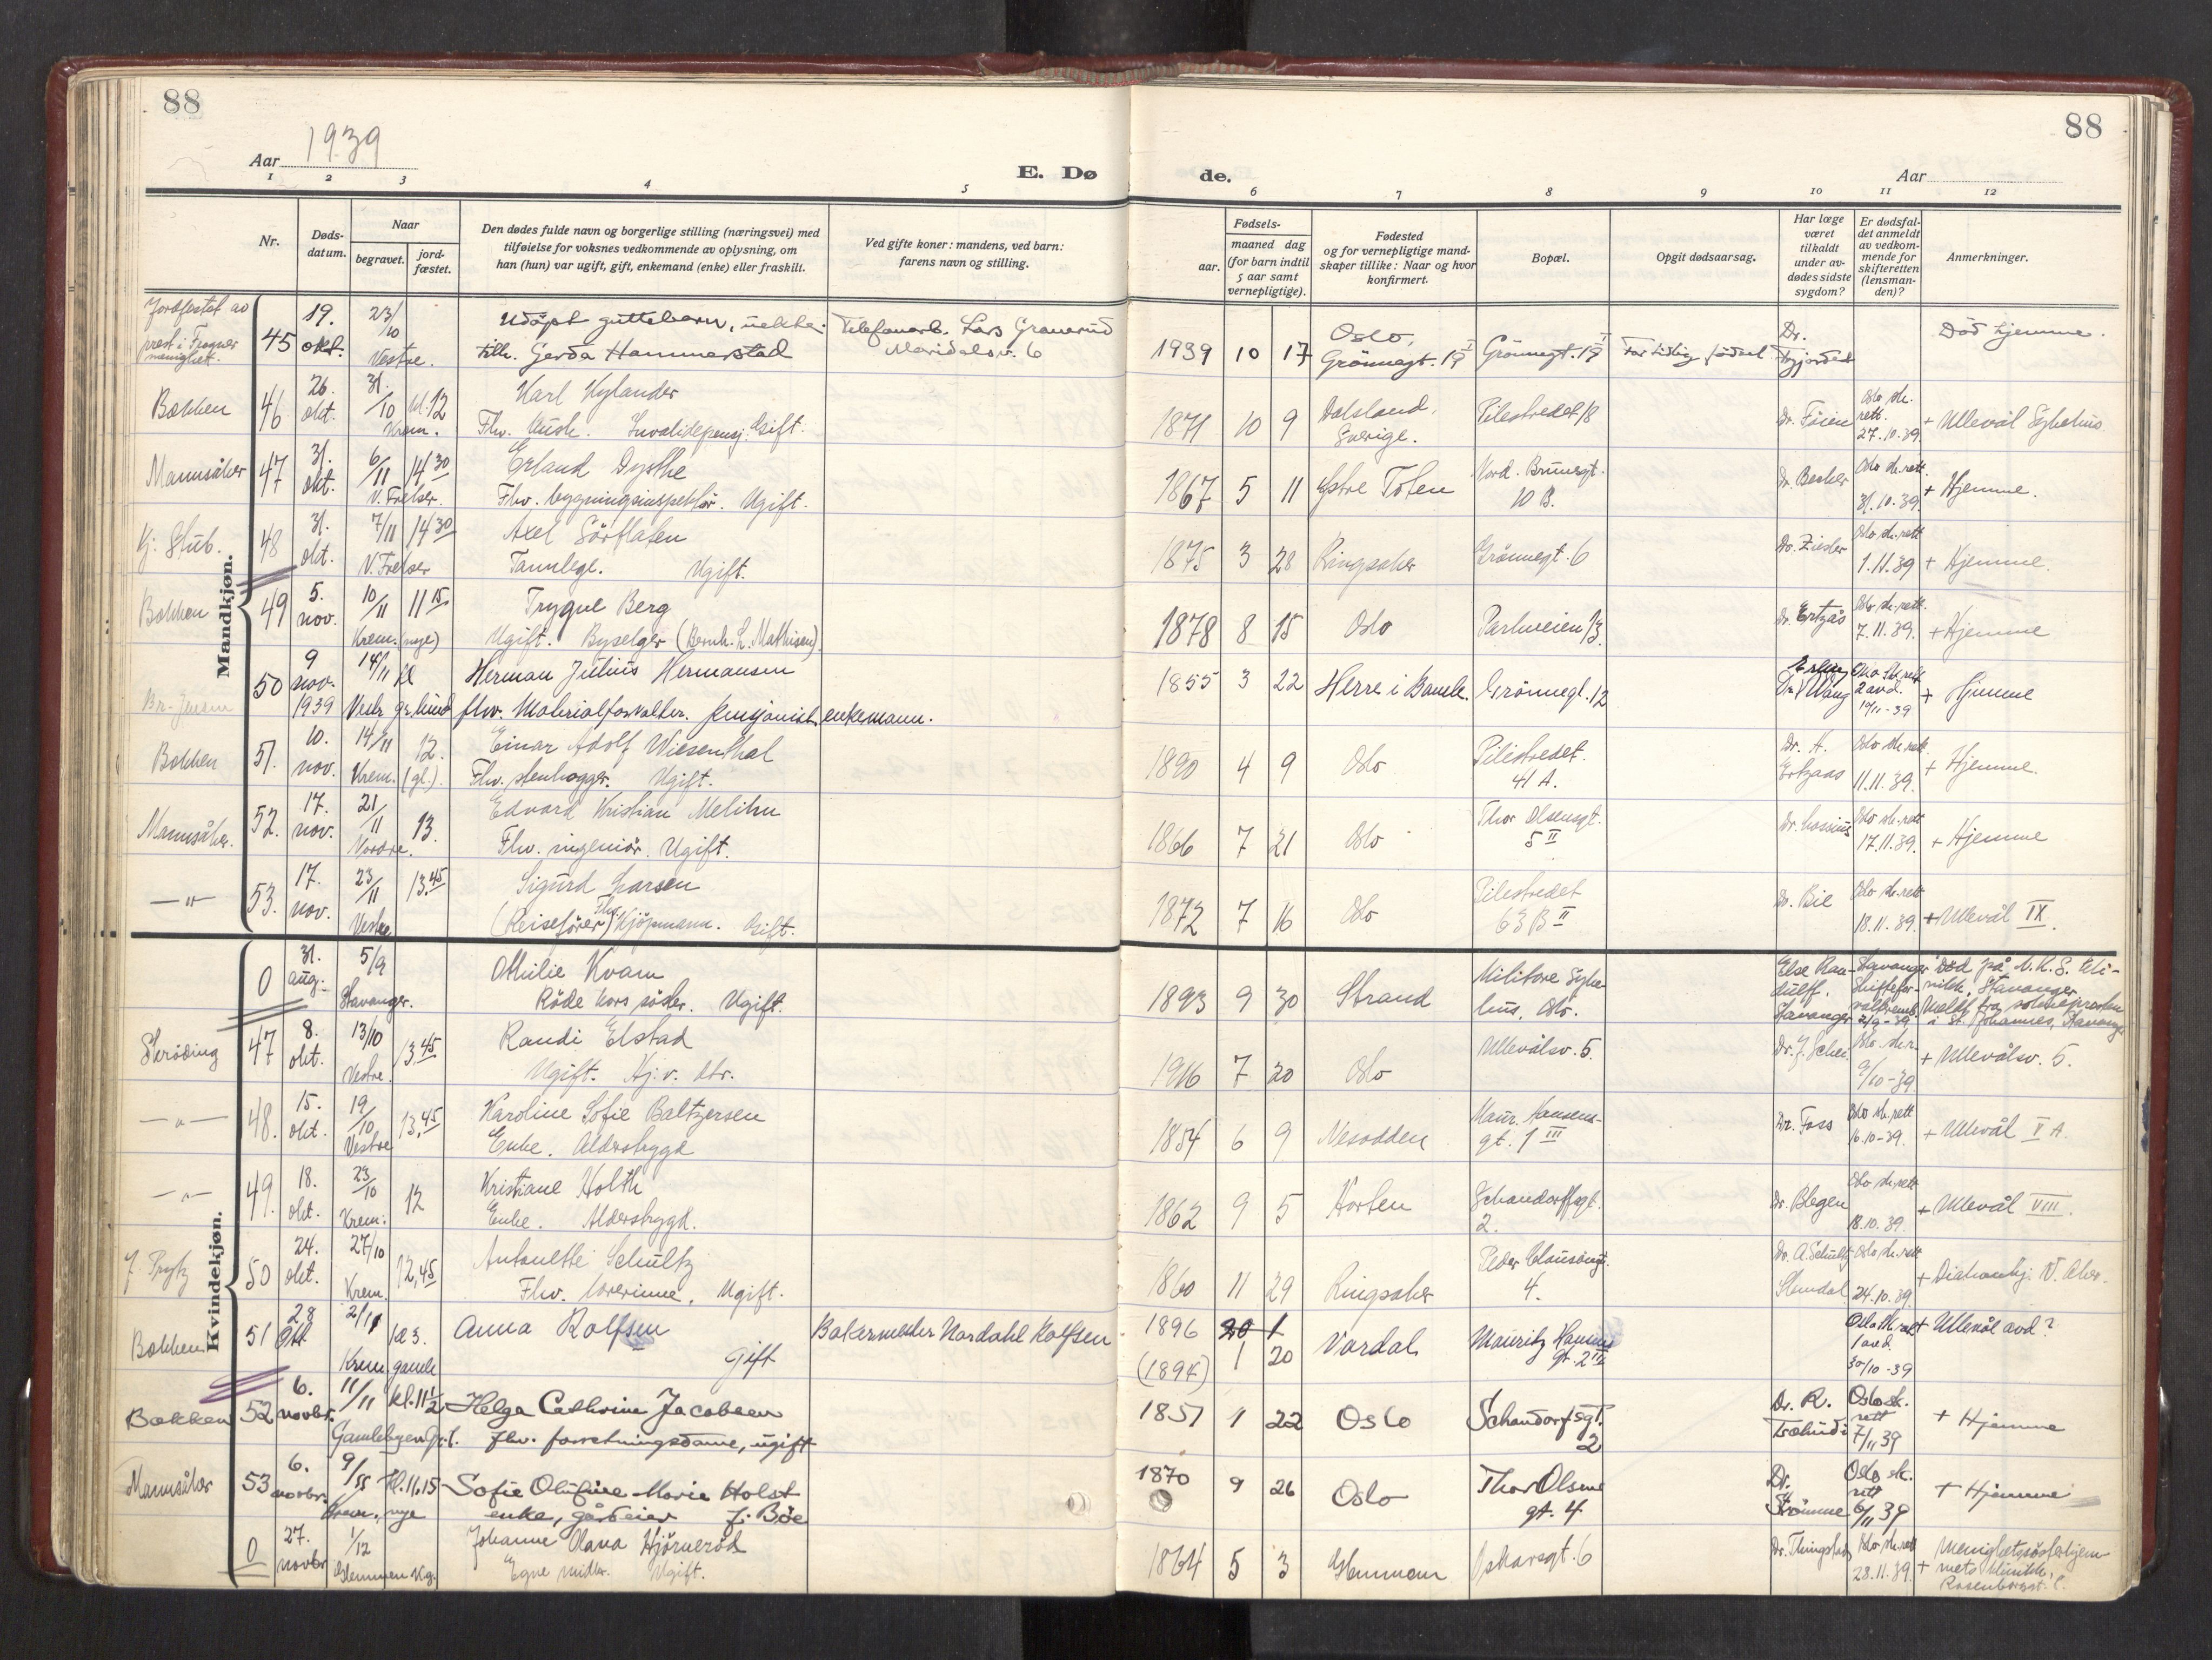 88
88
Aar 1939
E. Dø
de.
Aar
1 2 3 4 5 6 7 8 9 10 11 12
Nr.
Døds-
datum.
Naar
begravet.
jord-
fæstet.
Den dødes fulde navn og borgerlige stilling (næringsvei) med
tilføielse for voksnes vedkommende av oplysning, om
han (hun) var ugift, gift, enkemand (enke) eller fraskilt.
Ved gifte koner: mandens, ved barn:
farens navn og stilling.
aar.
Fødsels-
maaned dag
(for barn indtil
5 aar samt
vernepligtige).
Fødested
og for vernepligtige mand-
skaper tillike: Naar og hvor
konfirmert.
Bopæl.
Opgit dødsaarsag.
Har læge
været
tilkaldt
under av-
dødes sidste
sygdom?
Er dødsfal-
det anmeldt
av vedkom-
mende for
skifteretten
(lensman-
den)?
Anmerkninger.
Mandkjøn.
Jordfestet av
prest i Frogner
menighet.
45
19.
okt.
23/10
Vestre.
Udøpt guttebarn, uekte
tilh. Gerda Hammerstad
Telefonarb. Lars Granerud
Maridalsv. 6
1939 10 17
Oslo,
Grønnegt. 19 I
Grønnegt. 19 I
For tidlig födsel
Dr.
Död hjemme.
Bakken
46
26.
okt.
31/10
kl. 12
Krem.
Karl Kylander
Fhv. kusk. Invalidepensj. Gift.
1871 10 9
Dalsland,
Sverige.
Pilestredet 18
Dr. Föien
Oslo sk.
rett.
27.10.39.
+ Ullevål Sykehus
Mannsåker
47
31.
okt.
6/11
14 30
V. Frelser.
Erland Dysthe
Fhv. bygningsinspektör. Ugift.
1867 5 11
Östre Toten
Nord. Brunsgt.
10 B.
Dr. Becker
Oslo sk. rett.
31.10.39.
+ Hjemme.
Kj. Stub.
48
31.
okt.
7/11
14 30
V. Frelser
Axel Sörflaten
Tannlege. Ugift.
1875 3 28
Ringsaker
Grönnegt. 6
Dr. Ziesler
Oslo sk. rett
1.11.39
+ Hjemme.
Bakken
49
5.
nov.
10/11
11 15
Krem. (nye)
Trygve Berg
Ugift. Byselger (Bernh. L. Mathisen)
1878 8 15
Oslo
Parkveien 13.
Dr. Ertzås
Oslo sk. rett.
7.11.39.
+ Hjemme
50
9
nov.
1939
14/11
kl
Herman Julius Hermansen
fhv. Materialforvalter. pensjonist enkemann.
1855 3 22
Herre i Bamle.
Grönnegt. 12
Oslo sk. rett
2 avd.
10/11-39
+ Hjemme
Bakken
51.
10.
nov.
14/11
12.
Krem. (gl.)
Einar Adolf Wiesenthal
Fhv. stenhogger. Ugift.
1890 4 9
Oslo
Pilestredet.
41 A.
Dr. A.
Ertzaas
Oslo sk. rett.
11.11.39.
+ Hjemme.
Mannsåker.
52.
17.
nov.
21/11
13.
Nordre.
Edvard Kristian Melihn
Fhv. ingeniör. Ugift.
1866 7 21
Oslo
Thor Olsensgt.
5 II
Dr. Lossius
Oslo sk. rett
17.11.39.
+ Hjemme
— " —
53.
17.
nov.
23/11
13.45
Vestre
Sigurd Larsen
(Reiseförer) Fhv. Kjöpmann. Gift.
1872 7 16
Oslo
Pilestredet
63 B II
Dr. Bie
Oslo sk. rett
18.11.39.
+ Ullevål IX.
Kvindekjøn.
0
31.
aug.
5/9
Stavanger.
Othilie Kvam
Röde kors söster. Ugift.
1893 9 30
Strand
Militære Syke-
hus, Oslo.
Stavanger
2/9-39
Död på N.K.S. kli-
nikk, Stavanger
Meldt fra sokneprosten
i St. Johannes, Stavanger
Skröding
47
8.
okt.
13/10
13.45
Vestre.
Randi Elstad
Ugift. Hj.v. dtr.
1916 7 20
Oslo
Ullevålsv. 5.
Dr. J. Schei.
Oslo sk.r.
9/10-39.
+ Ullevålsv. 5.
— " —
48.
15.
okt.
19/10
13,45
Vestre
Karoline Sofie Baltzersen
Enke. Alderstrygd
1854 6 9
Nesodden
Maur. Hansens-
gt. 1 III
Dr. Foss
Oslo sk. rett
16.10-39.
+ Ullevål V A.
— " —
49.
18.
okt.
23/10
12
Krem.
Kristiane Holth
Enke. Alderstrygd.
1862 9 5
Horten
Schandorffsgt.
2.
Dr. Blegen
Oslo sk. rett
18.10.39.
+ Ullevål VIII.
J. Prytz
50
24.
okt.
27/10
12,45
Krem.
Antonette Schultz
Fhv. lærerinne. Ugift.
1860 11 29
Ringsaker
Peder Clausönsgt.
4.
Dr. A. Schultz
Slemdal
Oslo sk. rett
24.10.39.
+ Diakonhj. V. Aker.
Bakken
51
28
Okt
2/11
kl 3.
Krem. gamle
Anna Rolfsen
Gift
Bakermester Nordahl Rolfsen
1896 20 1
(1894) 1 20
Vardal
Mauritz Hansens
gt. 2 III
Oslo sk. rett
1 avd.
30/10-39
+ Ullevål avd?
Bakken
52
6.
novbr.
11/11
kl. 11 1/2
Gamlebyen Gr.l.
Helga Cathrine Jacobsen
fhv. forretningsdame, ugift
1851 1 22
Oslo
Schandorfsgt.
2
Dr. R.
Tschudi
Oslo sk.
rett
7/11 39
+ Hjemme
Mannsåker
53
6.
novbr.
9/11
Kl. 11.15
Krem. nye
Sofie Olufine Marie Holst
enke, gårdeier f. Böe
1870 9 26
Oslo
Thor Olsens
gt. 4
Dr.
Strömme
Oslo sk.
rett
6/11 39
+ Hjemme
0
27.
novbr
1/12
Glemmen Kg.
Johanne Olava Hjörneröd
Egne midler. Ugift.
1864 5 3
Glemmen
Oskarsgt. 6
Dr. Thingstad
Oslo sk. rett
28.11.39.
+ Menighetssösterhjem-
mets klinikk,
Rosenborggt.